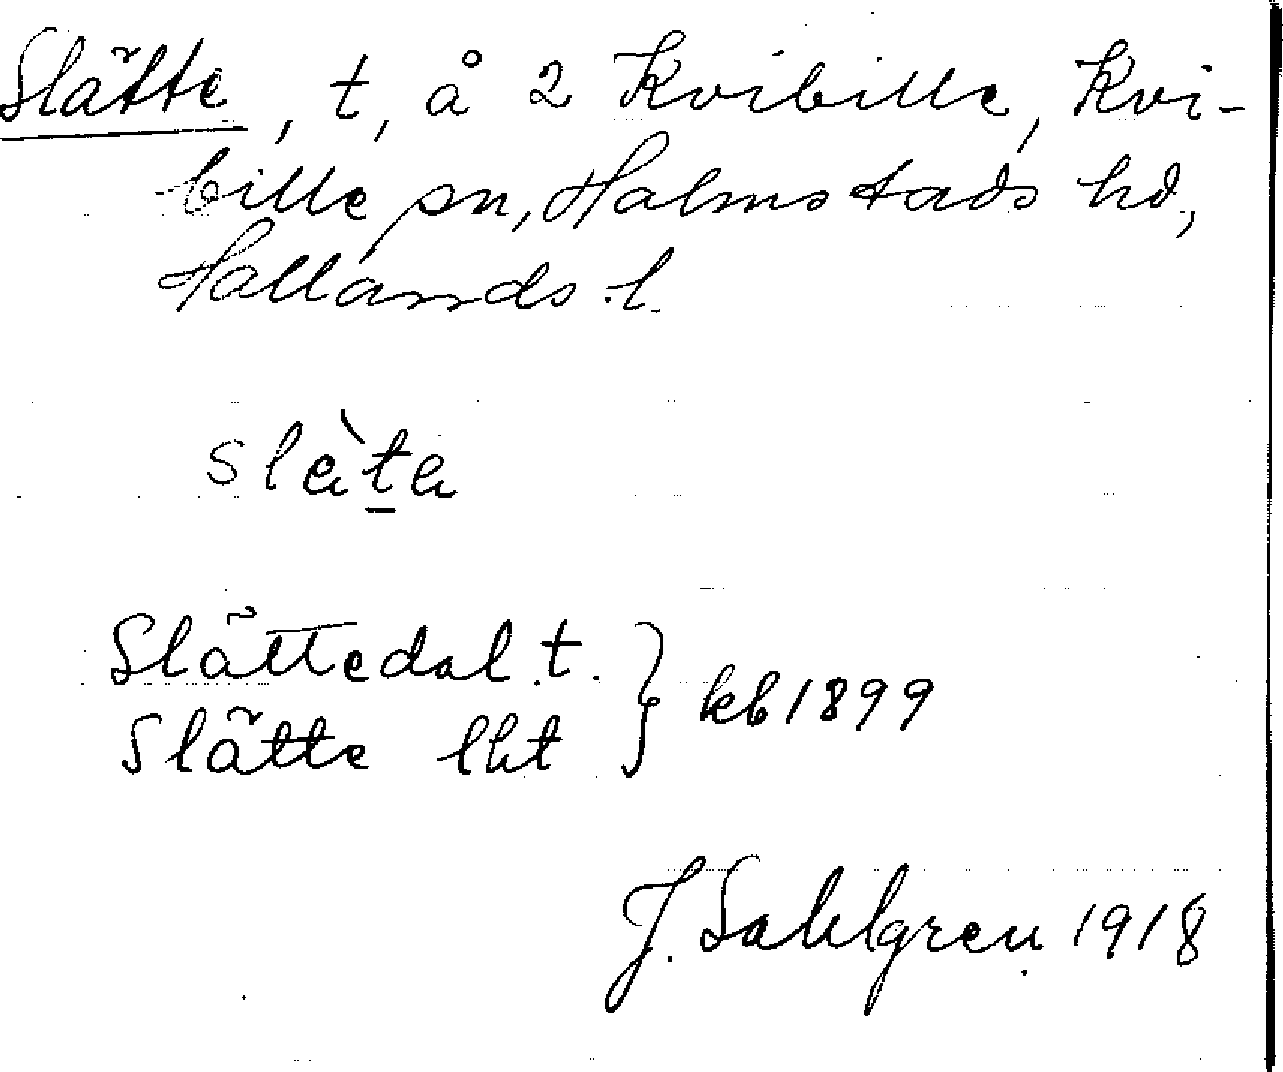 Slätte, t, å 2 Kvibille, Kvi-
bille sn, Halmstads hd,
Hallands l.
slèta
Slättedal t. } kb 1899
Slätte lht
J. Sahlgren 1918